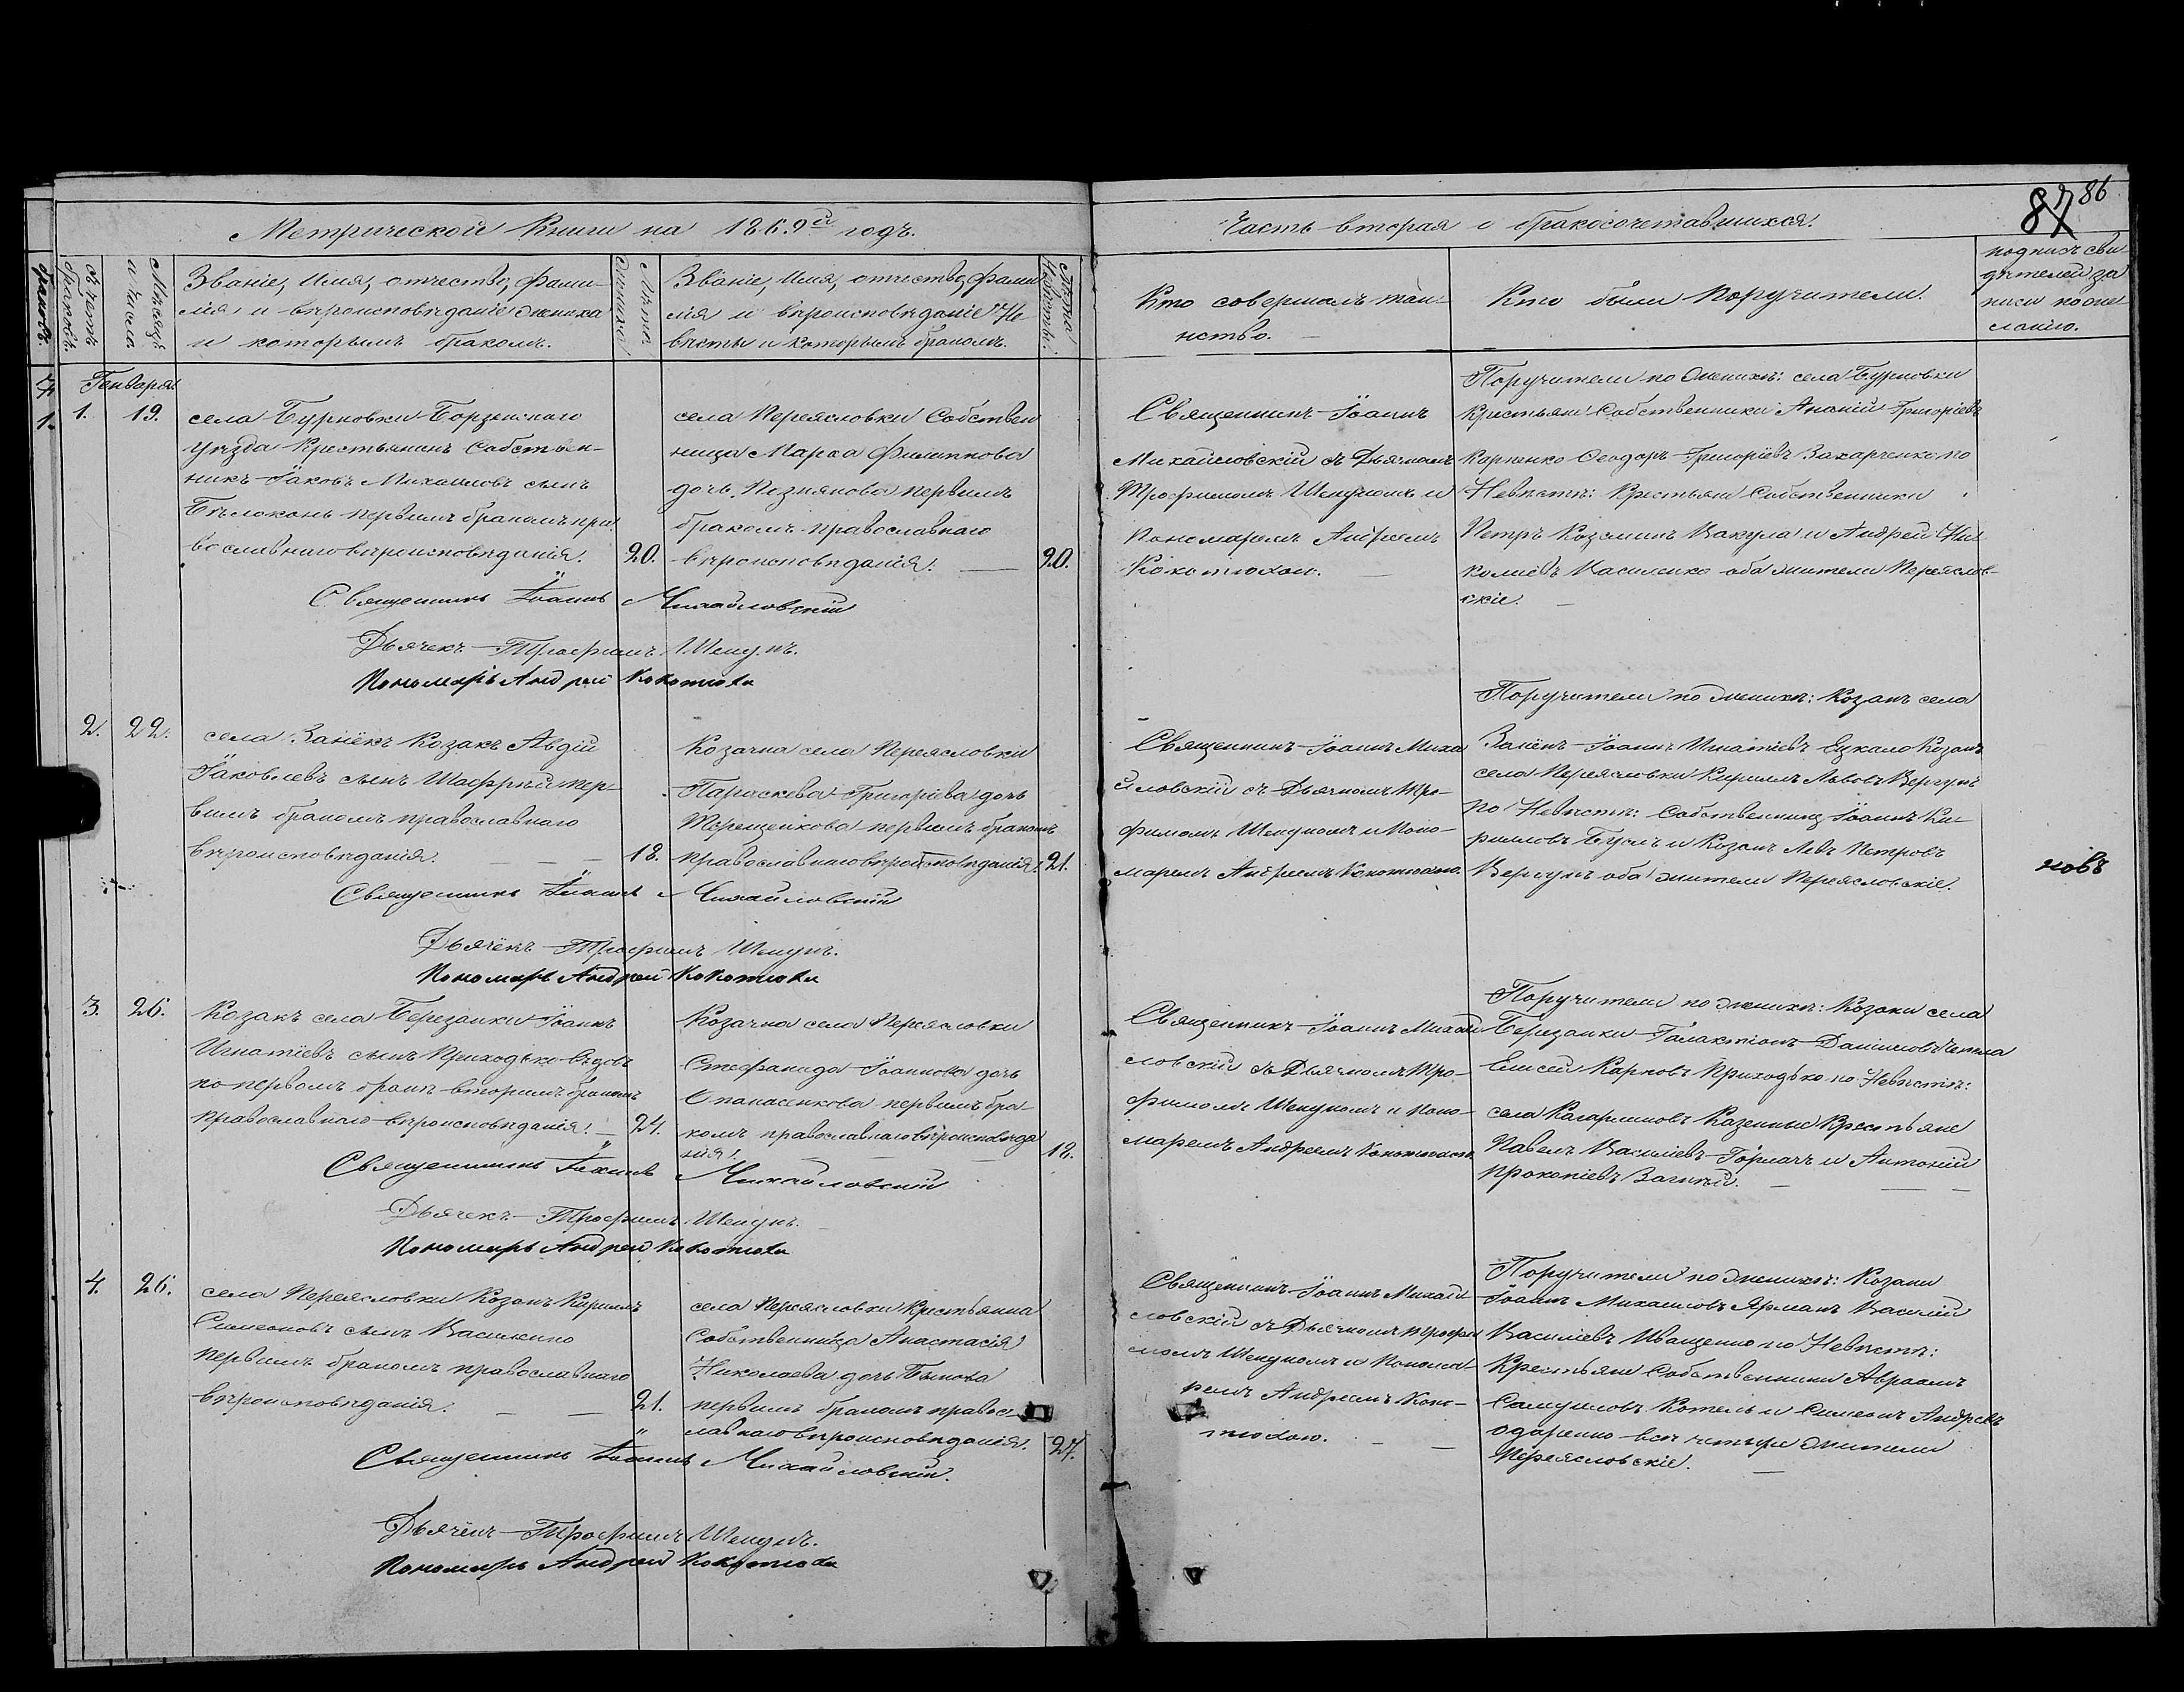 87 86
Метрической Книги на 1869й годъ.
Часть вторая о бракосочетавшихся.
Счетъ браковъ.
Мѣсяцъ и число.
Званіе, Имя, отчество, фами-
лія и вѣроисповѣданіе жениха
и которымъ бракомъ.
Лѣта жениха
Званіе, Имя, отчество, фами
лія и вѣроисповѣданіе Не
вѣсты и которымъ бракомъ.
Лѣта Невѣсты.
Кто совершалъ таи-
нство.
Кто были Поручители.
подписъ сви-
дѣтелей за
писи по же
ланію.
Генваря
1. 19.
села Бурковки Борзенскаго
уѣзда Крестьянинъ Собствен-
никъ Іаковъ Михаиловъ сынъ
Бѣлоконь первымъ бракомъ пра
вославнаго вѣроисповѣданія. 20.
села Переясловки Собствен
ница Марѳа Филиппова
дочь Познякова первымъ
бракомъ православнаго
вѣроисповѣданія. 20.
Священникъ Іоаннъ
Михайловскій съ Дьячкомъ
Трофимомъ Шендкомъ и
Пономаремъ Андреемъ
Кокотюхою.
Поручители по женихѣ: села Бурковки
Крестьяни Собственники Ананій Григоріевъ
Карпенко Ѳеодоръ Григоріевъ Захарченко по
Невѣстѣ: Крестьяни Собственники
Петръ Козминъ Вакула и Андрей Ни
колаевъ Василенко оба жители Переяслов-
скіе.
Священникъ Іоаннъ Михайловскій
Дьячекъ Трофимъ
Пономарь Андрей Кокотюха
2. 22.
села Заньекъ Козакъ Авдій
Іаковлевъ сынъ Шафрый пер-
вымъ бракомъ православнаго
вѣроисповѣданія. 18.
Козачка села Переясловки
Параскева Григоріева дочь
Терещенкова первымъ бракомъ
православнаго вѣроисповѣданія. 21.
Священникъ Іоаннъ Миха
йловскій съ Дьячкомъ Тро-
фимомъ и Поно-
маремъ Андреемъ Кокотюхою.
Поручители по женихѣ: Козакъ села
Заньекъ Іоаннъ Игнатіевъ Ецкало Козакъ
села Переясловки Кириллъ Львовъ Вергунъ
по Невѣстѣ: Собственникъ Іоаннъ Ки-
рилловъ и Козакъ Левъ Петровъ
Вергунъ оба жители Переясловскіе.
новъ
Священникъ Іоаннъ Михайловскій
Дьячекъ Трофимъ
Пономарь Андрей Кокотюха
3. 26.
Козакъ села Березанки Іоаннъ
Игнатіевъ сынъ Приходько вдовъ
по первомъ бракѣ вторымъ бракомъ
православнаго вѣроисповѣданія. 24.
Козачка села Переясловки
Стефанида Іоаннова дочь
Опанасенкова первымъ бра-
комъ православнаго вѣроисповѣда
нія. 18.
Священникъ Іоаннъ Михай
ловскій съ Дьячкомъ Тро-
фимомъ и Поно-
маремъ Андреемъ Кокотюхою
Поручители по женихѣ: Козаки села
Березанки Галактіонъ Даниловъ
Елисей Карповъ Приходько по Невѣстѣ:
села Казенные Крестьяне
Павелъ Василіевъ Горкачъ и Антоній
Прокопіевъ
Священникъ Іоаннъ Михайловскій
Дьячекъ Трофимъ
Пономарь Андрей Кокотюха
4. 26.
села Переясловки Козакъ Кириллъ
Симеоновъ сынъ Василенко
первымъ бракомъ православнаго
вѣроисповѣданія. 21.
села Переясловки Крестьянка
Собственница Анастасія
Николаева дочь Быкова
первымъ бракомъ правос
лавнаго вѣроисповѣданія. 27.
Священникъ Іоаннъ Михай
ловскій съ Дьячкомъ Трофи
момъ и Понома-
ремъ Андреемъ Коко-
тюхою.
Поручители по женихѣ: Козаки
Іоаннъ Михаиловъ Ярмакъ Василій
Василіевъ Иващенко по Невѣстѣ:
Крестьяни Собственники Авраамъ
Самуиловъ Котель и Симеонъ Андреевъ
Одаренко всѣ четыре жители
Переясловскіе.
Священникъ Іоаннъ Михайловскій.
Дьячекъ Трофимъ
Пономарь Андрей Кокотюха